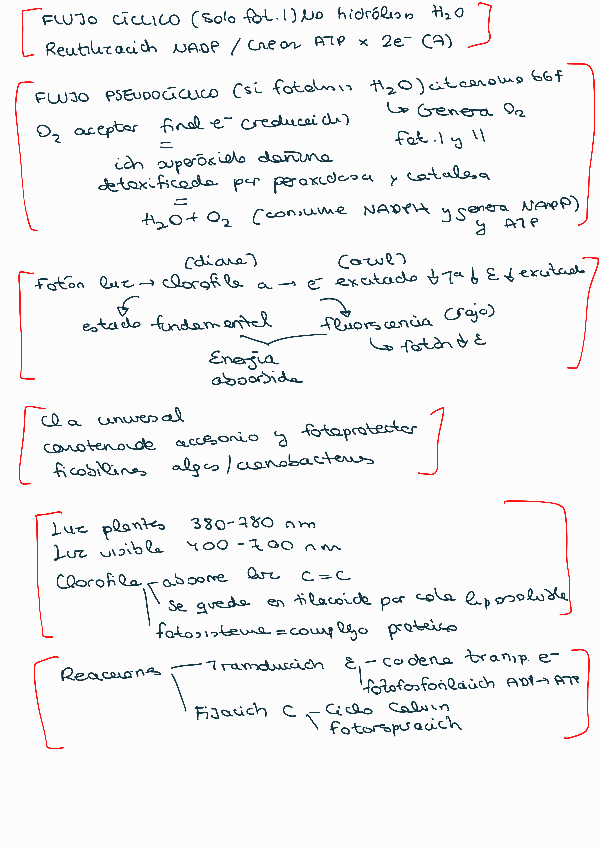 FLUJO CÍCLICO (solo fot. I) No hidrólisis H2O
Reutilización NADP / Crear ATP x 2e- (A)
FLUJO PSEUDOCÍCLICO (sí fotólisis H2O) citocromo b6f
↳ Genera O2
O2 aceptor final e- (reducción)
fot. I y II
=
ión superóxido dañino
detoxificado por peroxidasa y catalasa
=
H2O + O2 (consume NADPH y genera NADP)
y ATP
(diana) (azul)
Fotón luz → clorofila a → e- excitado ↓ Tª ↓ E ↓ excitado
estado fundamental fluorescencia (rojo)
↳ fotón ↓ E
Energía
absorbida
Cl a universal
carotenoide accesorio y fotoprotector
ficobilinas algas/cianobacterias
Luz plantas 380-780 nm
Luz visible 400-700 nm
Clorofila - absorbe luz C=C
Se queda en tilacoide por cola liposoluble
fotosistema = complejo proteico
Reacciones - Transducción E - cadena transp. e-
fotofosforilación ADP → ATP
Fijación C - Ciclo Calvin
fotorrespiración